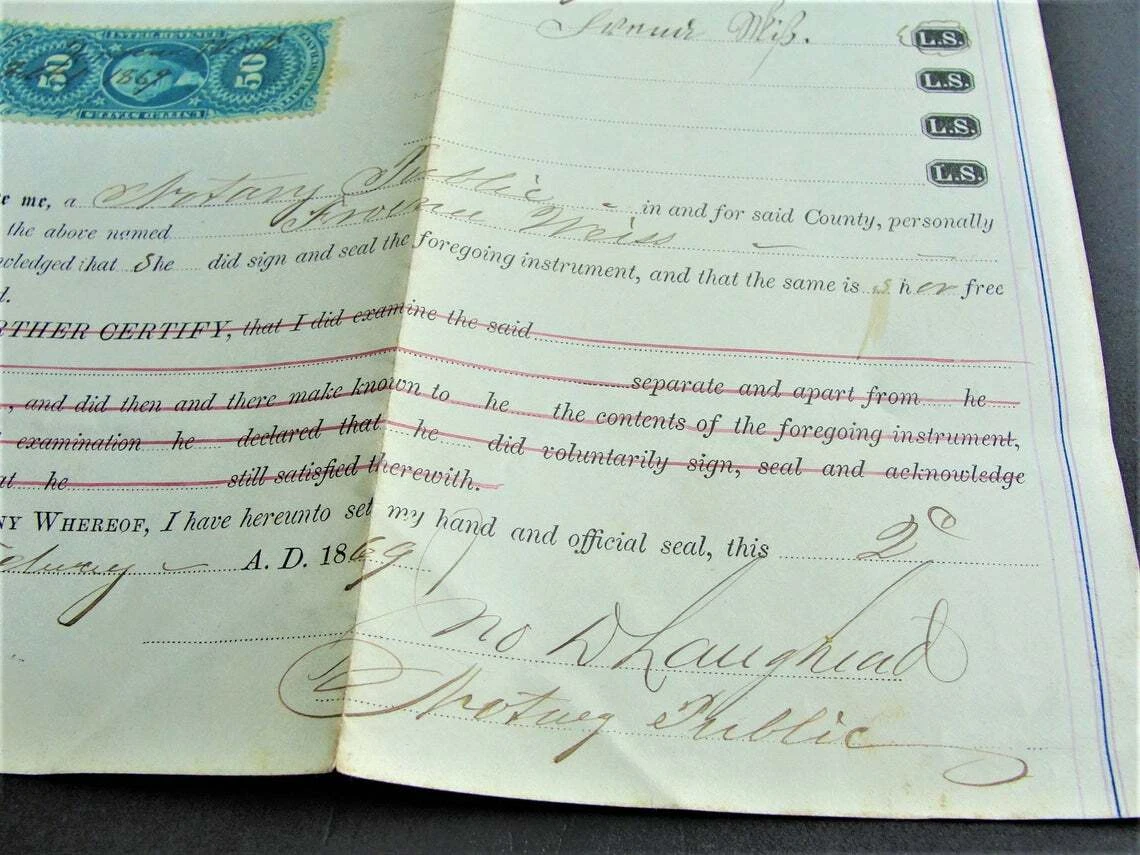 INTER. REVENUE
50 1869 50
UNITED STATES
L.S.
L.S.
L.S.
L.S.
re me, a Notary Public in and for said County, personally
the above named Weiss
wledged that She did sign and seal the foregoing instrument, and that the same is her free
d.
RTHER CERTIFY, that I did examine the said
separate and apart from he
, and did then and there make known to he the contents of the foregoing instrument,
examination he declared that he did voluntarily sign, seal and acknowledge
at he still satisfied therewith.
NY WHEREOF, I have hereunto set my hand and official seal, this 2d
A. D. 1869
Jno D Laughead
Notary Public